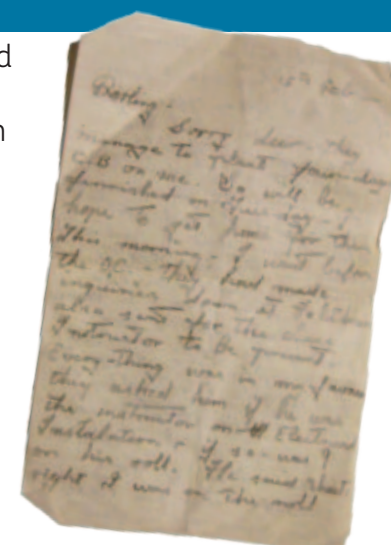 d
n
15th Feb
Darling:
Sorry dear, they
manage to plant fourteen
C.B on me. So will be
finished on Tuesday. I
hope to get home for then
This morning I went before
the O.C. They had made
inquiries down at
also sent for the
Instructor to be present
Everything was in my favour
they asked him if he was
the instructor on Electrical
Instalation, & if so was I
on his roll. He said that
right I was on the roll